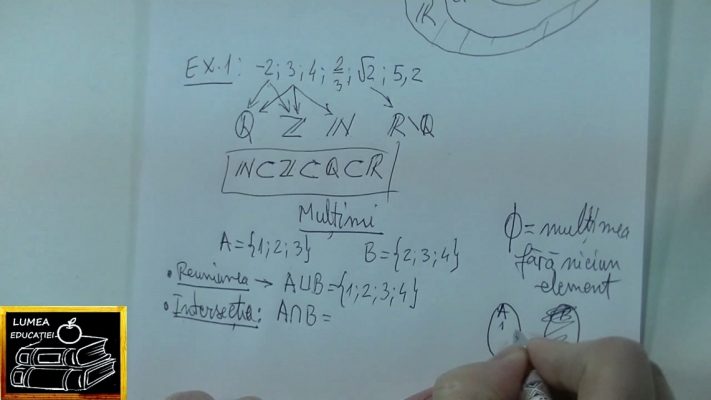 R
Ex.1: -2; 3; 4; 2/3; √2; 5,2
ℚ ℤ ℕ ℝ\ℚ
ℕ⊂ℤ⊂ℚ⊂ℝ
Mulțimi
A={1;2;3} B={2;3;4}
• Reuniunea → A∪B={1;2;3;4}
• Intersecția: A∩B=
ϕ=mulțimea
fără niciun
element
A
1
LUMEA
EDUCAȚIEI